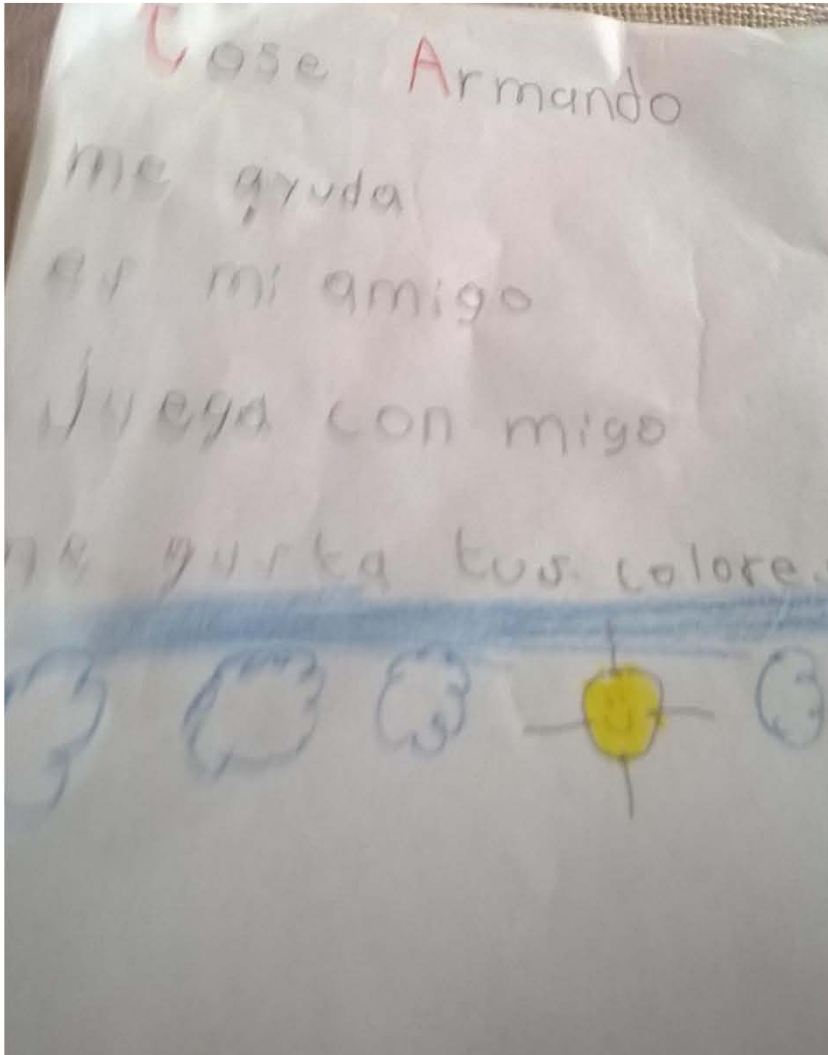 Jose Armando
me ayuda
es mi amigo
Juega con migo
me gusta tus colore